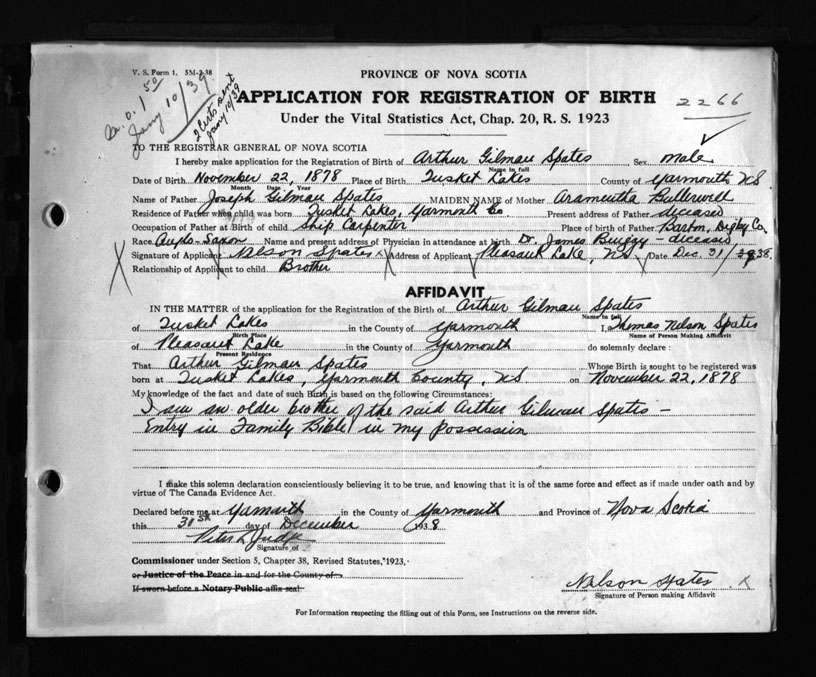 V. S. Form 1. 5M-2-38
PROVINCE OF NOVA SCOTIA
1 50
Jany 10/39
2 Certs sent
Jany 10/39
APPLICATION FOR REGISTRATION OF BIRTH
2266
Under the Vital Statistics Act, Chap. 20, R. S. 1923
TO THE REGISTRAR GENERAL OF NOVA SCOTIA
I hereby make application for the Registration of Birth of Arthur Gilman Spates Sex male
Name in full
Date of Birth November 22, 1878 Place of Birth Tusket Lakes County of Yarmouth N.S.
Month Date Year
Name of Father Joseph Gilman Spates MAIDEN NAME of Mother Aramentha Bullerwell
Residence of Father when child was born Tusket Lakes, Yarmouth Co Present address of Father deceased
Occupation of Father at Birth of child Ship Carpenter Place of birth of Father Barton, Digby Co,
Race Anglo-Saxon Name and present address of Physician in attendance at birth Dr. James Buggy - deceased
Signature of Applicant Nelson Spates x Address of Applicant Pleasant Lake, N.S. Date Dec. 31/38.
Relationship of Applicant to child Brother
AFFIDAVIT
IN THE MATTER of the application for the Registration of the Birth of Arthur Gilman Spates
Name in full
of Tusket Lakes in the County of Yarmouth I, Thomas Nelson Spates
Birth Place Name of Person Making Affidavit
of Pleasant Lake in the County of Yarmouth do solemnly declare:
Present Residence
That Arthur Gilman Spates Whose Birth is sought to be registered was
born at Tusket Lakes, Yarmouth County, N.S on November 22, 1878
My knowledge of the fact and date of such Birth is based on the following Circumstances:
I am an older brother of the said Arthur Gilman Spates -
Entry in Family Bible in my possession
I make this solemn declaration conscientiously believing it to be true, and knowing that it is of the same force and effect as if made under oath and by
virtue of The Canada Evidence Act.
Declared before me at Yarmouth in the County of Yarmouth and Province of Nova Scotia
this 31st day of December 1938
Peter L Judge
Signature of
Commissioner under Section 5, Chapter 38, Revised Statutes, 1923,
or Justice of the Peace in and for the County of
If sworn before a Notary Public affix seal
Nelson Spates x
Signature of Person making Affidavit
For Information respecting the filling out of this Form, see Instructions on the reverse side.